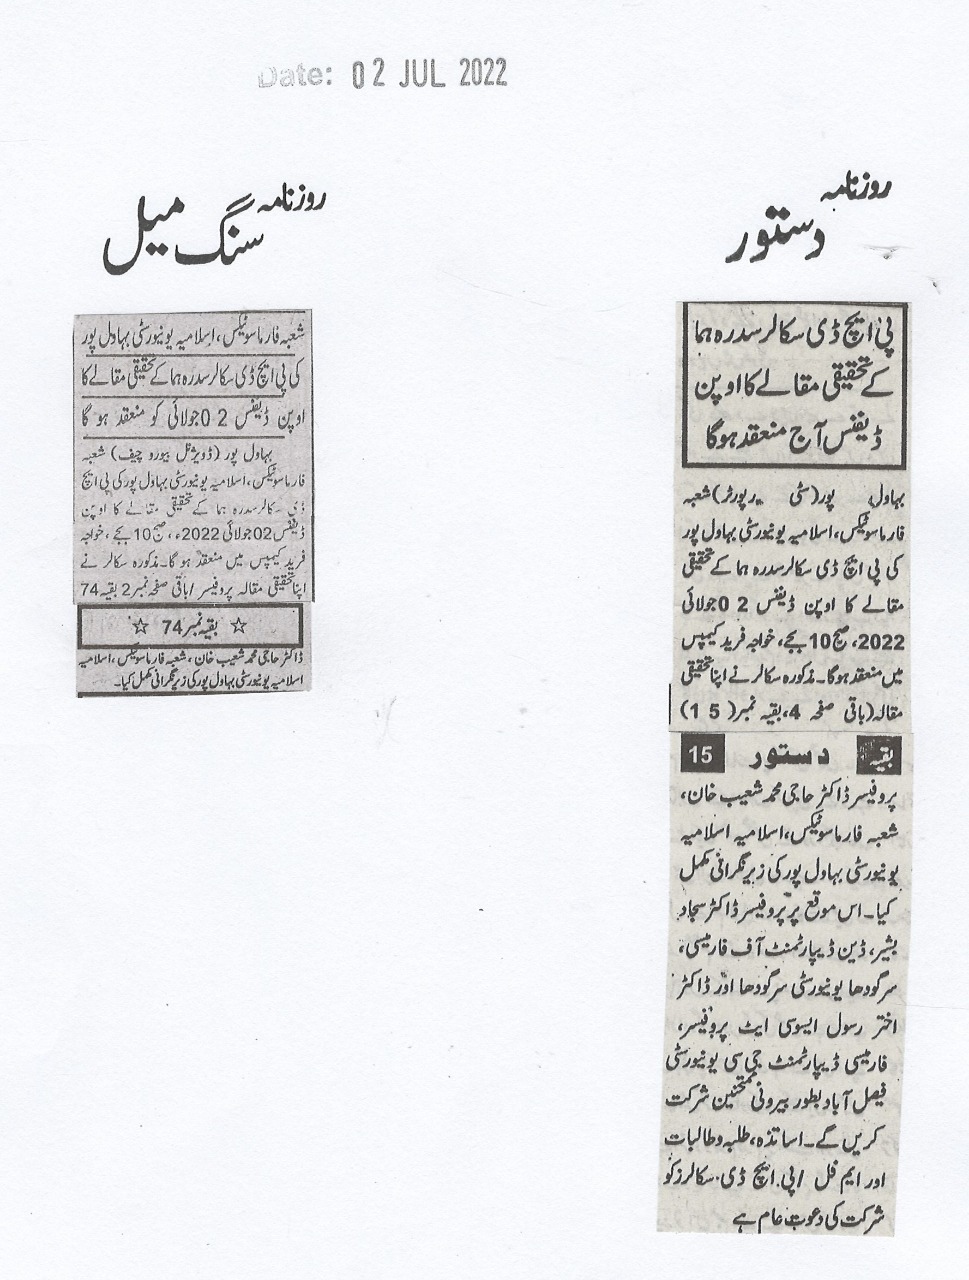 Date: 02 JUL 2022
روزنامہ
دستور
پی ایچ ڈی سکالر سدرہ ہما
کے تحقیقی مقالے کا اوپن
ڈیفنس آج منعقد ہوگا
بہاول پور(سٹی رپورٹر)شعبہ
فارماسوٹیکس، اسلامیہ یونیورسٹی بہاول پور
کی پی ایچ ڈی سکالر سدرہ ہما کے تحقیقی
مقالے کا اوپن ڈیفنس 02 جولائی
2022، صبح 10 بجے، خواجہ فرید کیمپس
میں منعقد ہوگا۔ مذکورہ سکالر نے اپنا تحقیقی
مقالہ(باقی صفحہ 4، بقیہ نمبر(15)
بقیہ دستور 15
پروفیسر ڈاکٹر حاجی محمد شعیب خان،
شعبہ فارماسوٹیکس، اسلامیہ اسلامیہ
یونیورسٹی بہاول پور کی زیر نگرانی مکمل
کیا۔ اس موقع پر پروفیسر ڈاکٹر سجاد
بشیر، ڈین ڈیپارٹمنٹ آف فارمیسی،
سرگودھا یونیورسٹی سرگودھا اور ڈاکٹر
اختر رسول ایسوسی ایٹ پروفیسر،
فارمیسی ڈیپارٹمنٹ جی سی یونیورسٹی
فیصل آباد بطور بیرونی ممتحنین شرکت
کریں گے۔ اساتذہ، طلبہ و طالبات
اور ایم فل /پی ایچ ڈی سکالرز کو
شرکت کی دعوت عام ہے
روزنامہ
سنگ میل
شعبہ فارماسوٹیکس، اسلامیہ یونیورسٹی بہاول پور
کی پی ایچ ڈی سکالر سدرہ ہما کے تحقیقی مقالے کا
اوپن ڈیفنس 02 جولائی کو منعقد ہو گا
بہاول پور (ڈویژنل بیورو چیف) شعبہ
فارماسوٹیکس، اسلامیہ یونیورسٹی بہاول پور کی پی ایچ
ڈی سکالر سدرہ ہما کے تحقیقی مقالے کا اوپن
ڈیفنس 02 جولائی 2022ء، صبح 10 بجے، خواجہ
فرید کیمپس میں منعقد ہو گا۔ مذکورہ سکالر نے
اپنا تحقیقی مقالہ پروفیسر /باقی صفحہ نمبر 2 بقیہ 74
☆ بقیہ نمبر 74 ☆
ڈاکٹر حاجی محمد شعیب خان، شعبہ فارماسوٹیکس، اسلامیہ
اسلامیہ یونیورسٹی بہاول پور کی زیر نگرانی مکمل کیا۔